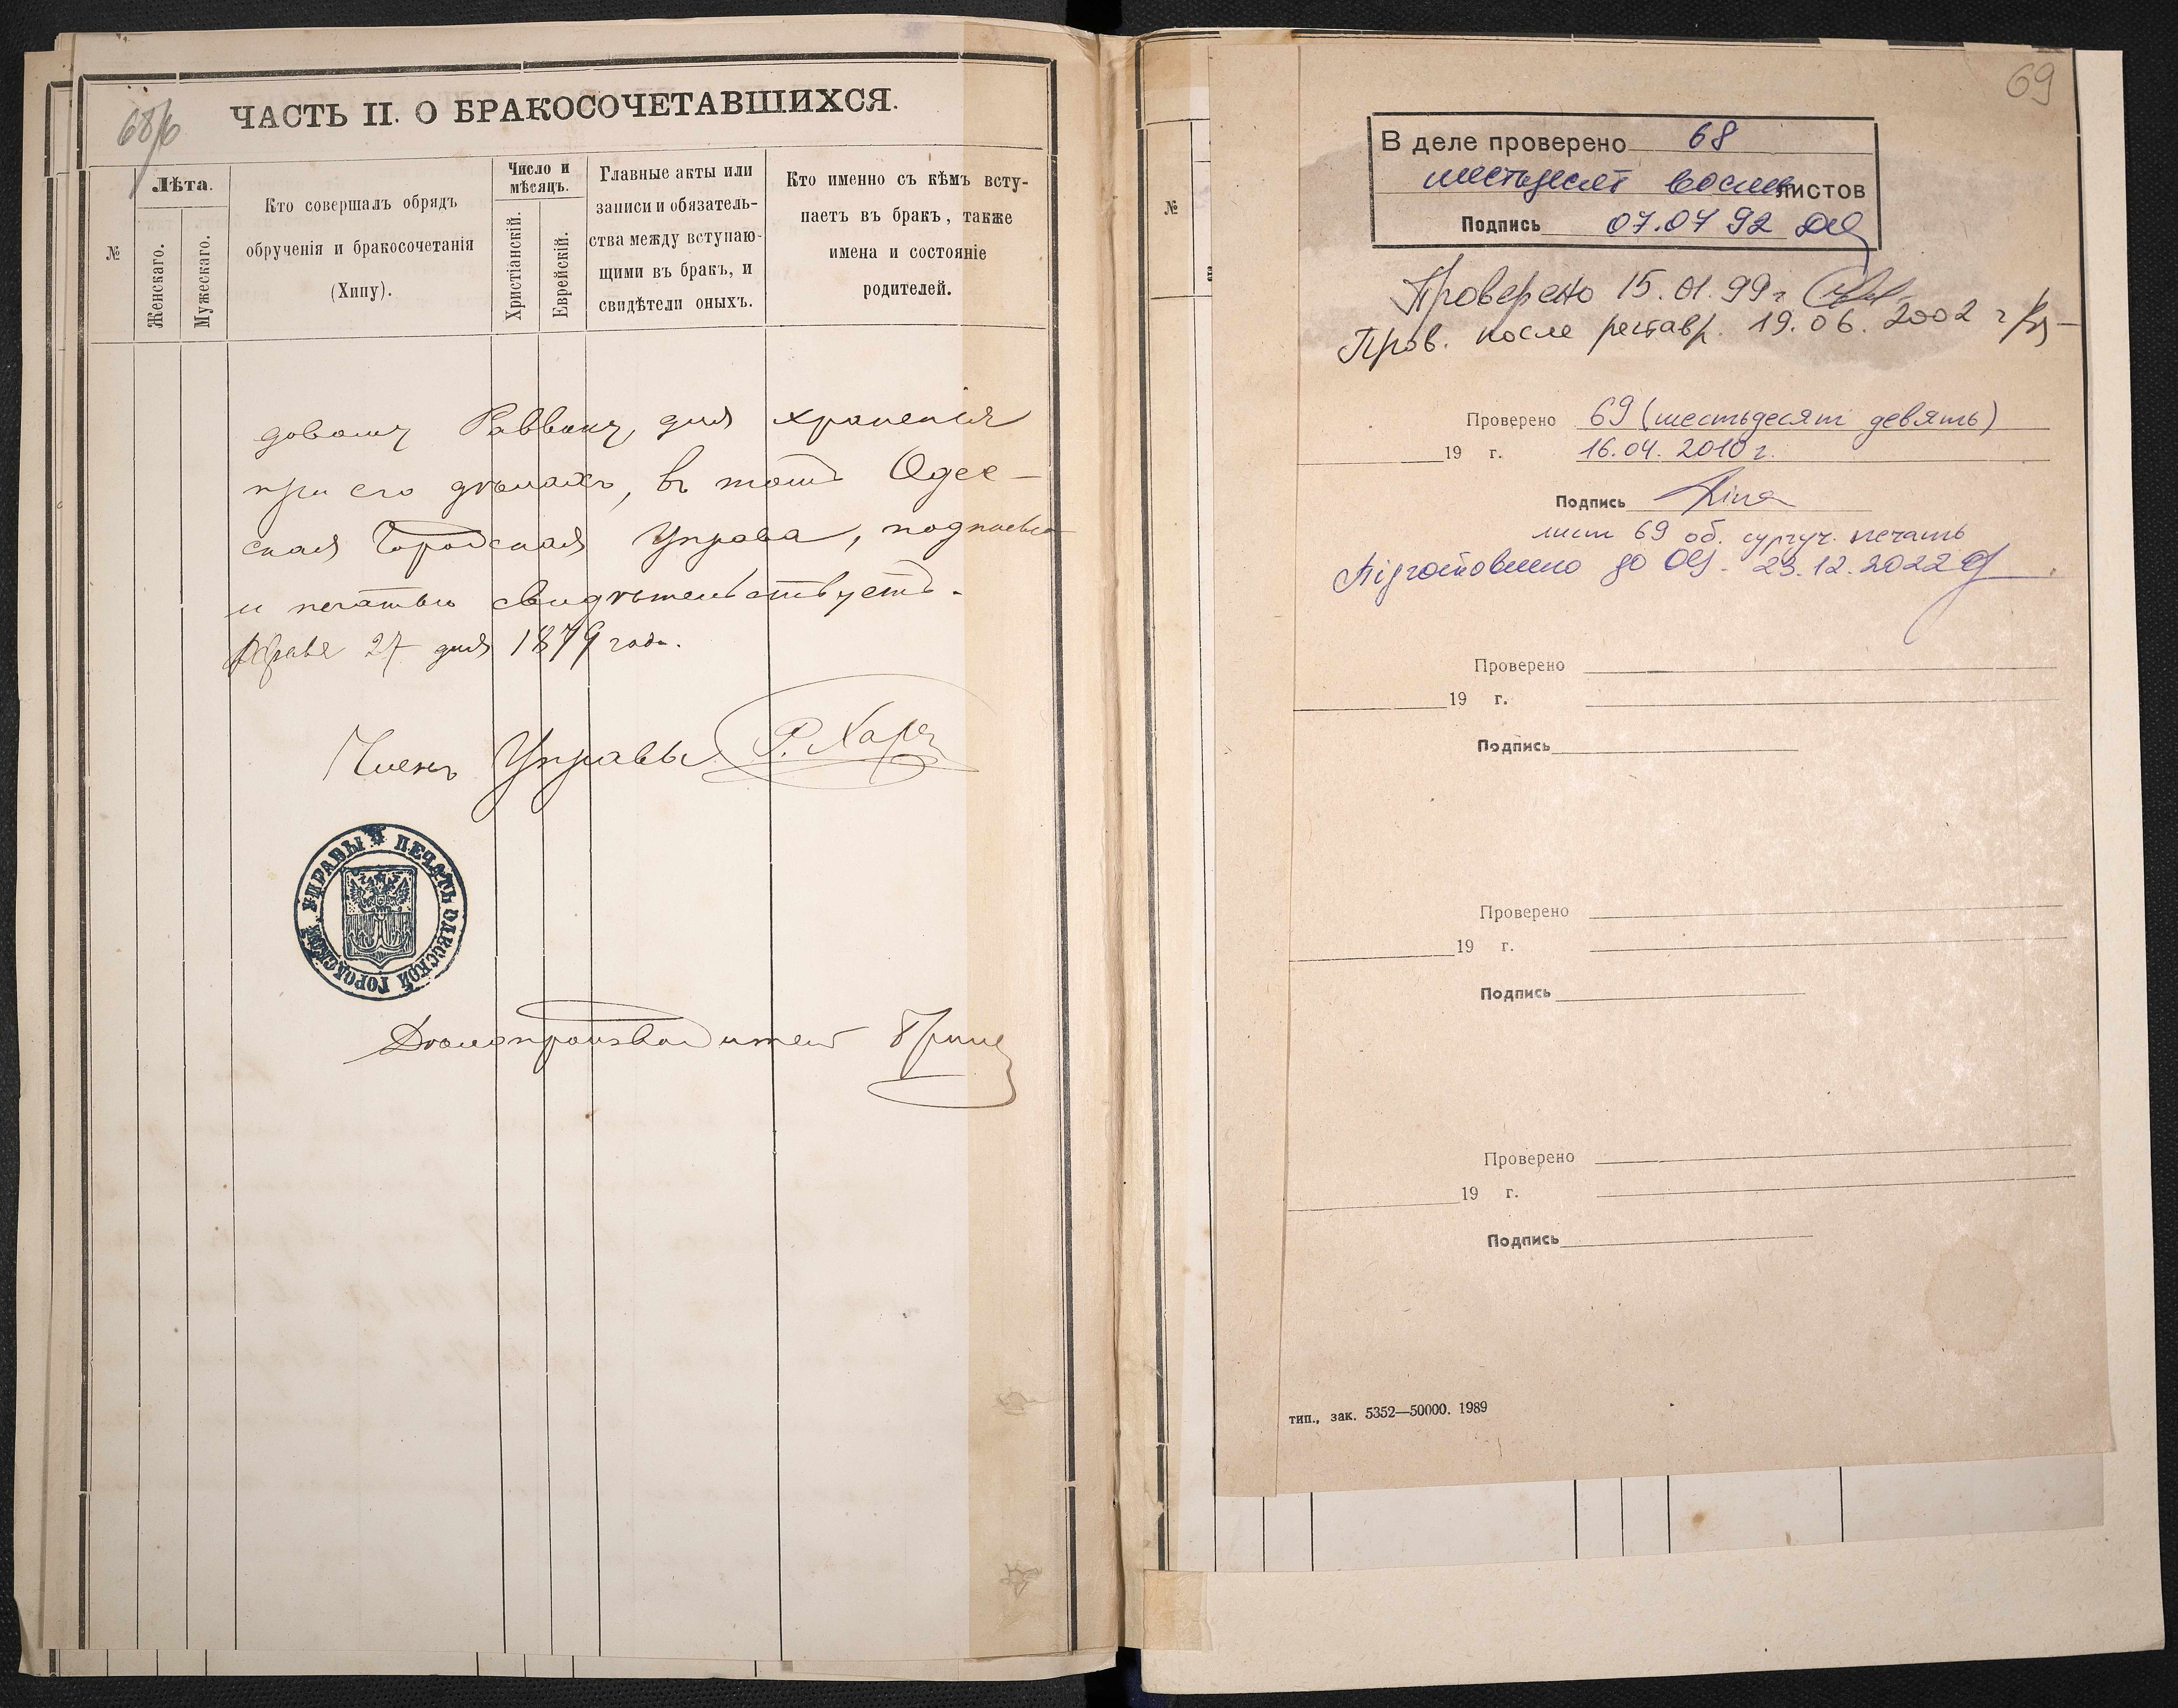 68/б
ЧАСТЬ II. О БРАКОСОЧЕТАВШИХСЯ.
№
Лѣта.
Женскаго.
Мужескаго.
Кто совершалъ обрядъ
обрученія и бракосочетанія
(Хипу).
Число и
мѣсяцъ.
Христіанскій.
Еврейскій.
Главные акты или
записи и обязатель-
ства между вступаю-
щими въ бракъ, и
свидѣтели оныхъ.
Кто именно съ кѣмъ всту-
паетъ въ бракъ, также
имена и состояніе
родителей.
довому Раввину, для храненія
при его дѣлахъ, въ томъ Одес-
ская Городская Управа, подписью
и печатью свидѣтельствуетъ.
27 дня 1879 года.
Членъ Управы
ПЕЧАТЬ ОДЕССКОЙ ГОРОДСКОЙ УПРАВЫ
Дѣлопроизводитель
69
№
В деле проверено 68
шестьдесят восемь листов
Подпись 07.07 92
Проверено 15.01.99 г
Пров. после реставр. 19.06.2002 г
Проверено 69 (шестьдесят девять)
19 г. 16.04.2010 г.
Подпись
лист 69 об. сургуч. печать
Підготовлено до 23.12.2022
Проверено
19 г.
Подпись
Проверено
19 г.
Подпись
Проверено
19 г.
Подпись
тип., зак. 5352—50000. 1989